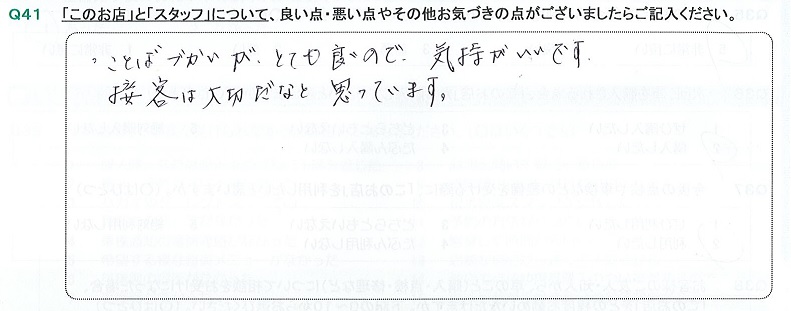 Q41 「このお店」と「スタッフ」について、良い点・悪い点やその他お気づきの点がございましたらご記入ください。
・ことばづかいが、とても良いので、気持がいいです.
接客は大切だなと思っています。